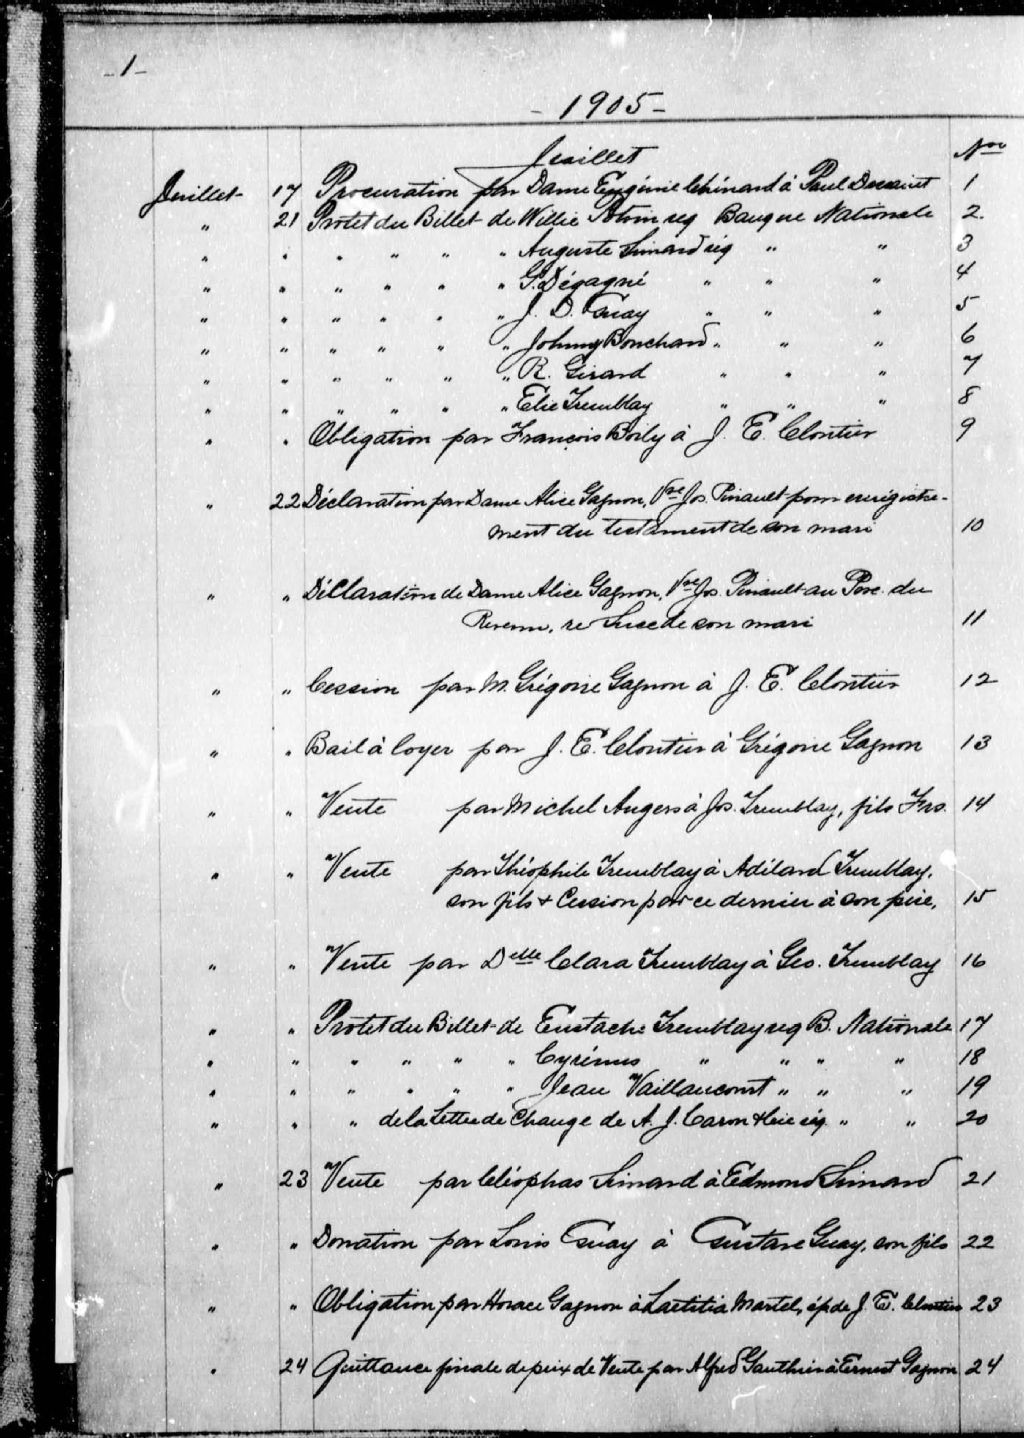 -1-
-1905-
Juillet Nos
Juillet 17 Procuration par Dame Eugénie Chénard à Paul 1
" 21 Protêt du Billet de Willie Potvin req Banque Nationale 2.
" " " " " " Auguste Simard réq " " 3
" " " " " " G. Dégagné " " " 4
" " " " " " J. D. Guay " " " 5
" " " " " " Johnny Bouchard " " " 6
" " " " " " R. Girard " " " 7
" " " " " " Elie Tremblay " " " 8
" " Obligation par François Boily à J. E. Cloutier 9
" 22 Déclaration par Dame Alice Gagnon, Vve Jos. Pinault pour enrégistre-
ment du testament de son mari 10
" " Déclaration de Dame Alice Gagnon, Vve Jos. Pinault au Perc. du
Revenu, re Succ de son mari 11
" " Cession par M. Grégoire Gagnon à J. E. Cloutier 12
" " Bail à loyer par J. E. Cloutier à Grégoire Gagnon 13
" " Vente par Michel Angers à Jos. Tremblay, fils Frs. 14
" " Vente par Théophile Tremblay à Adélard Tremblay,
son fils & Cession par ce dernier à son père, 15
" " Vente par Delle Clara Tremblay à Geo. Tremblay 16
" " Protêt du Billet de Eustache Tremblay req B. Nationale 17
" " " " " " Cyrénus " " " " 18
" " " " " " Jean Vaillancourt " " " 19
" " " de la Lettre de Change de A. J. Caron & Cie réq. " " 20
" 23 Vente par Cléophas Simard à Edmond Simard 21
" " Donation par Louis Guay à Gustave Guay, son fils 22
" " Obligation par Horace Gagnon à Laetitia Martel, ép de J. E. Cloutier 23
" 24 Quittance finale de prix de Vente par Alfred Gauthier à Ernest Gagnon 24